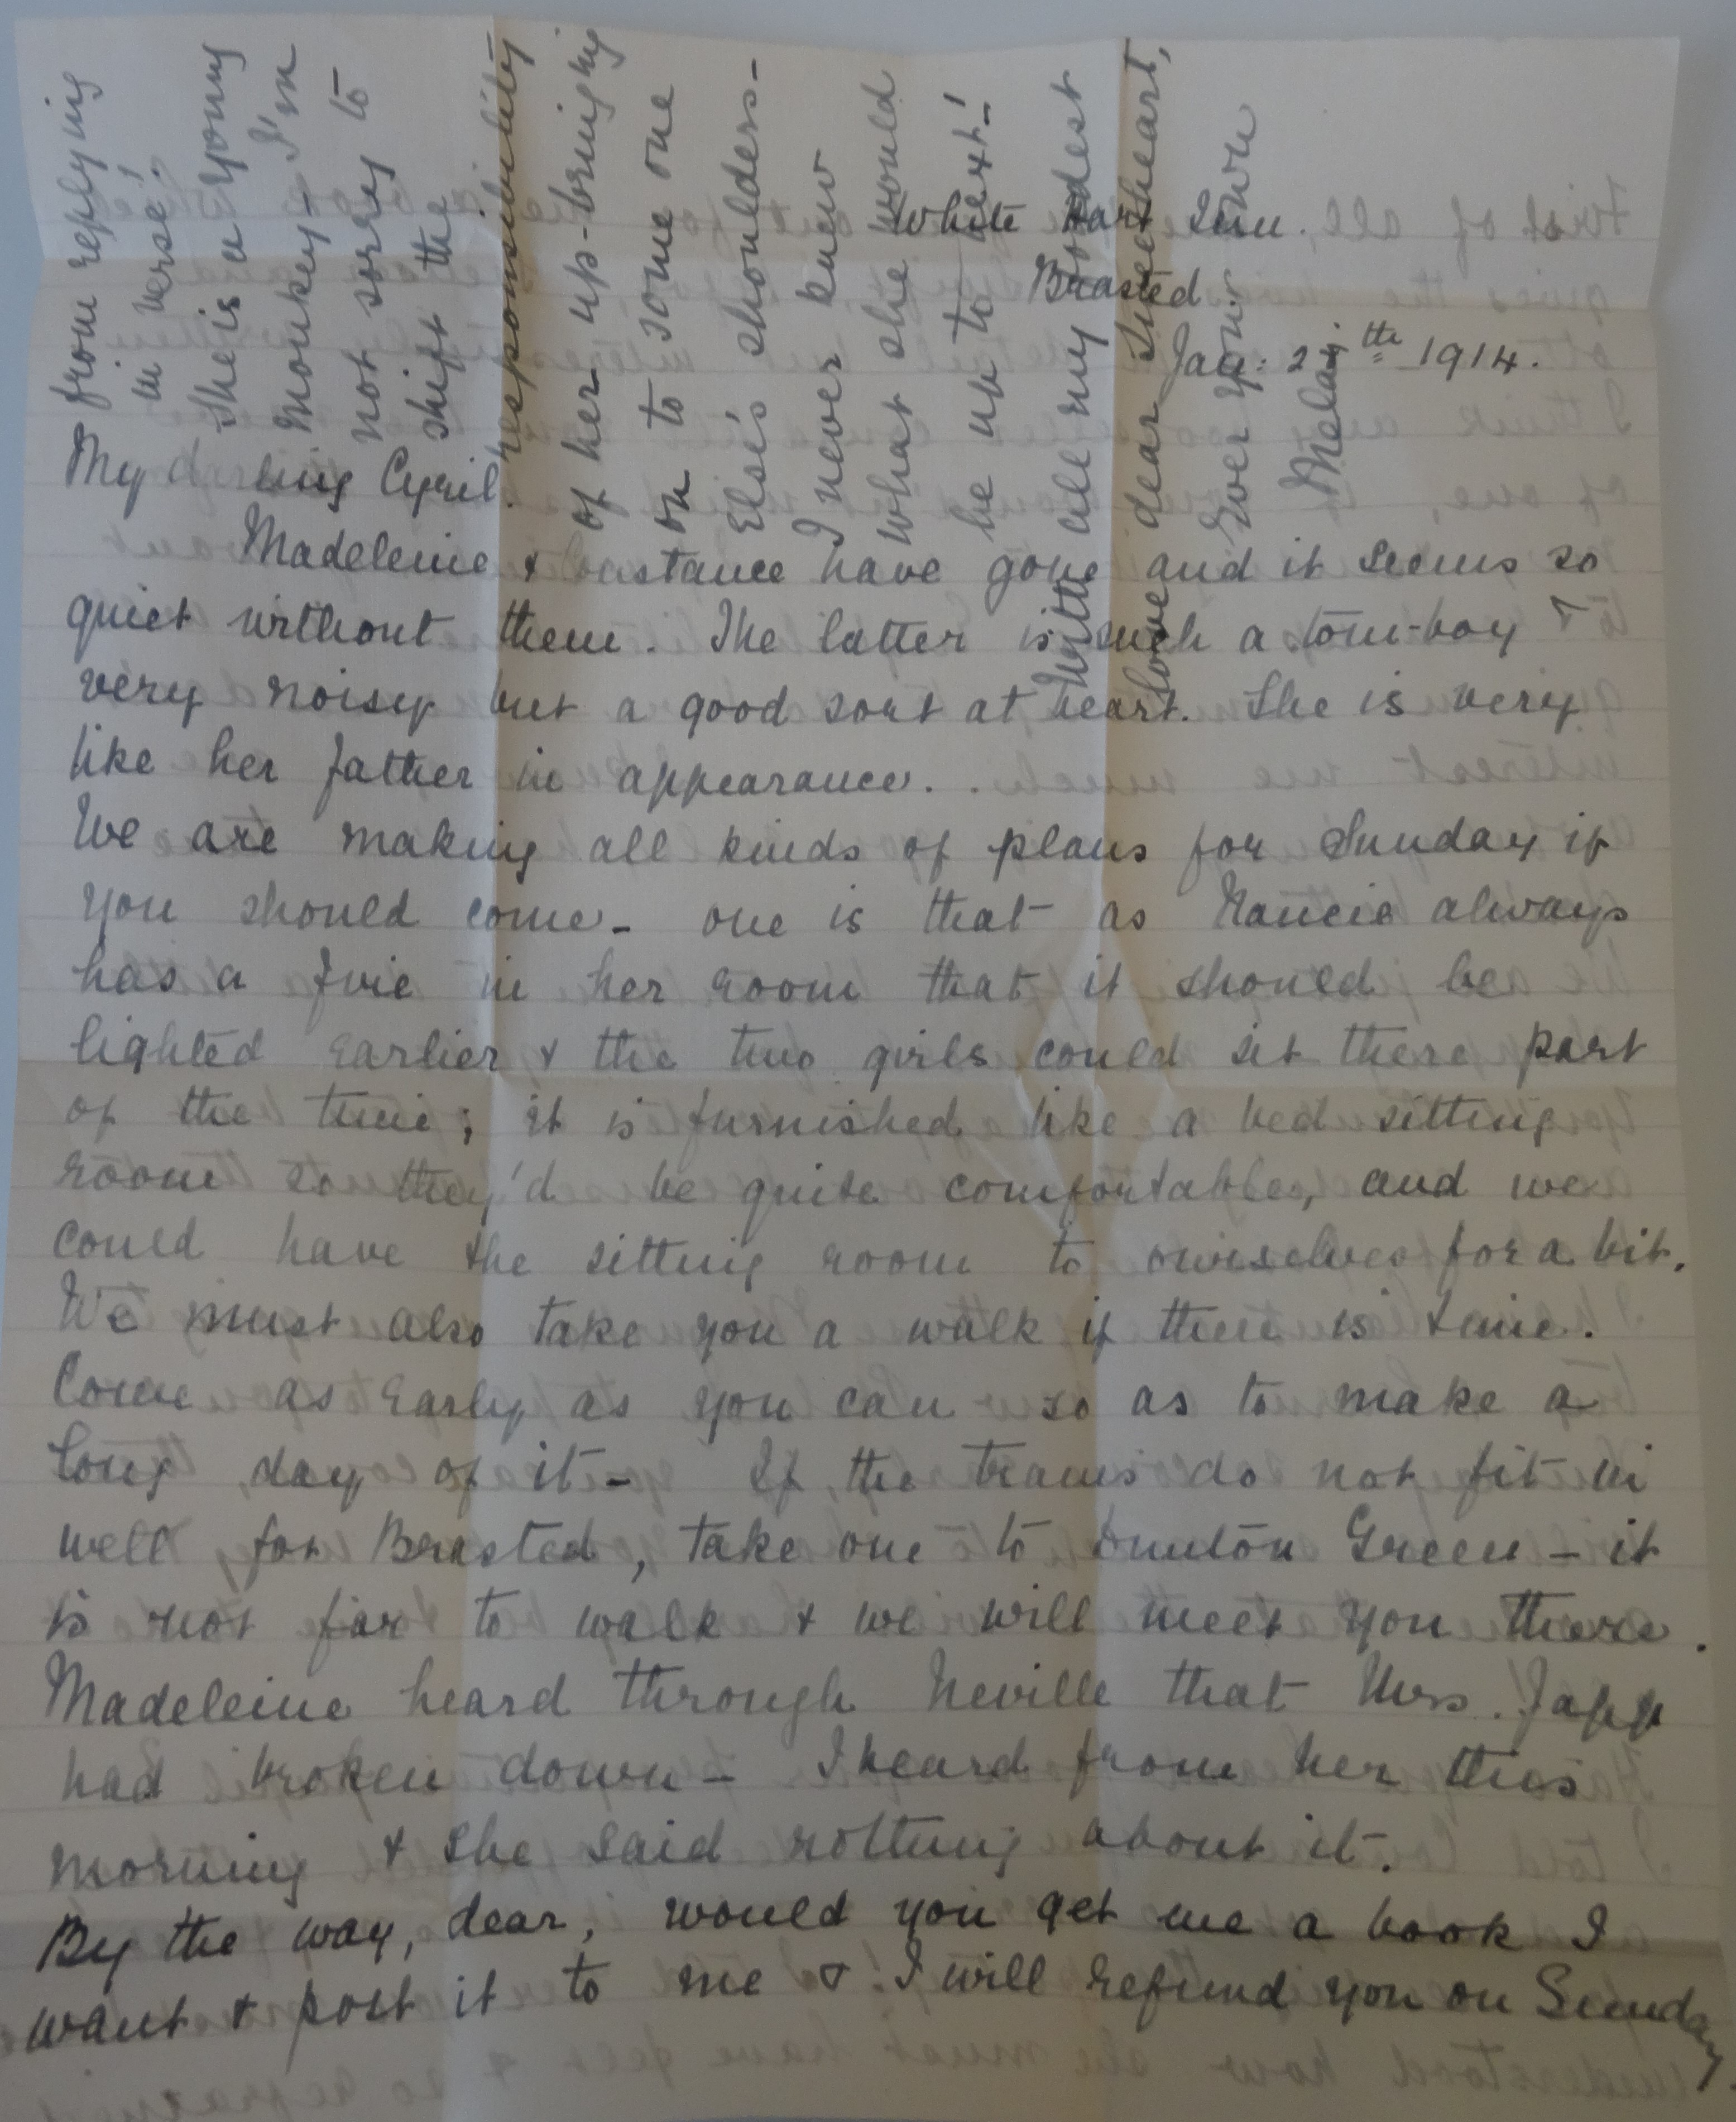 White Hart Inn.
Brasted.
Jan: 27th 1914.
My darling Cyril.
Madeleine & Constance have gone and it seems so
quiet without them. The latter is such a tom-boy &
very noisy but a good sort at heart. She is very
like her father in appearance..
We are making all kinds of plans for Sunday if
you should come - one is that as Nancie always
has a fire in her room that it should be
lighted earlier & the two girls could sit there part
of the time; it is furnished like a bed sitting
room so they'd be quite comfortable, and we
could have the sitting room to ourselves for a bit.
We must also take you a walk if there is time.
Come as early as you can so as to make a
long day of it - If the trains do not fit in
well for Brasted, take one to Dunton Green - it
is not far to walk & we will meet you there.
Madeleine heard through Neville that Mrs. Japp
had broken down - I heard from her this
morning & she said nothing about it.
By the way, dear, would you get me a book I
want & post it to me & I will refund you on Sunday.
from replying
in verse!
She is a young
monkey - I'm
not sorry to
shift the
responsibility
of her up-bringing
on to some one
else's shoulders -
I never knew
what she would
be up to next!
With all my fondest
love dear Sweetheart,
Ever your own
Melany